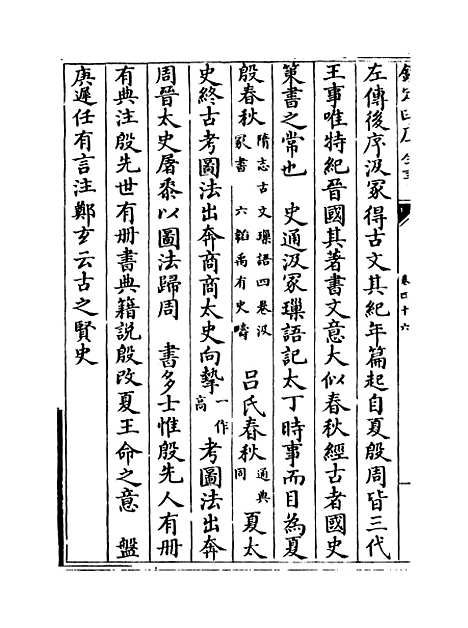 欽定四庫全書
卷四十六
左傳後序汲冢得古文其紀年篇起自夏殷周皆三代
王事唯特紀晉國其著書文意大似春秋經古者國史
策書之常也 史通汲冢璅語記太丁時事而目為夏
殷春秋隋志古文璅語四卷汲冢書 六韜禹有史疇 呂氏春秋通典同 夏太
史終古考圖法出奔商商太史向摯一作高考圖法出奔
周晉太史屠黍以圖法歸周 書多士惟殷先人有冊
有典注殷先世有册書典籍說殷改夏王命之意 盤
庚遲任有言注鄭玄云古之賢史